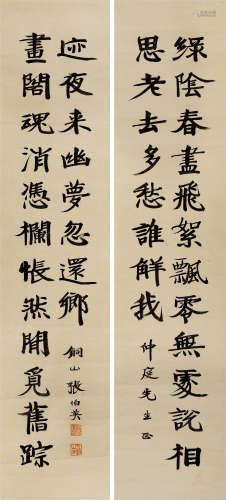 綠陰春盡飛絮飄零無處說相
思老去多愁誰解我
仲庭先生正
畫閣魂消憑欄悵然閒覓舊踪
迹夜来幽夢忽還鄉
銅山張伯英